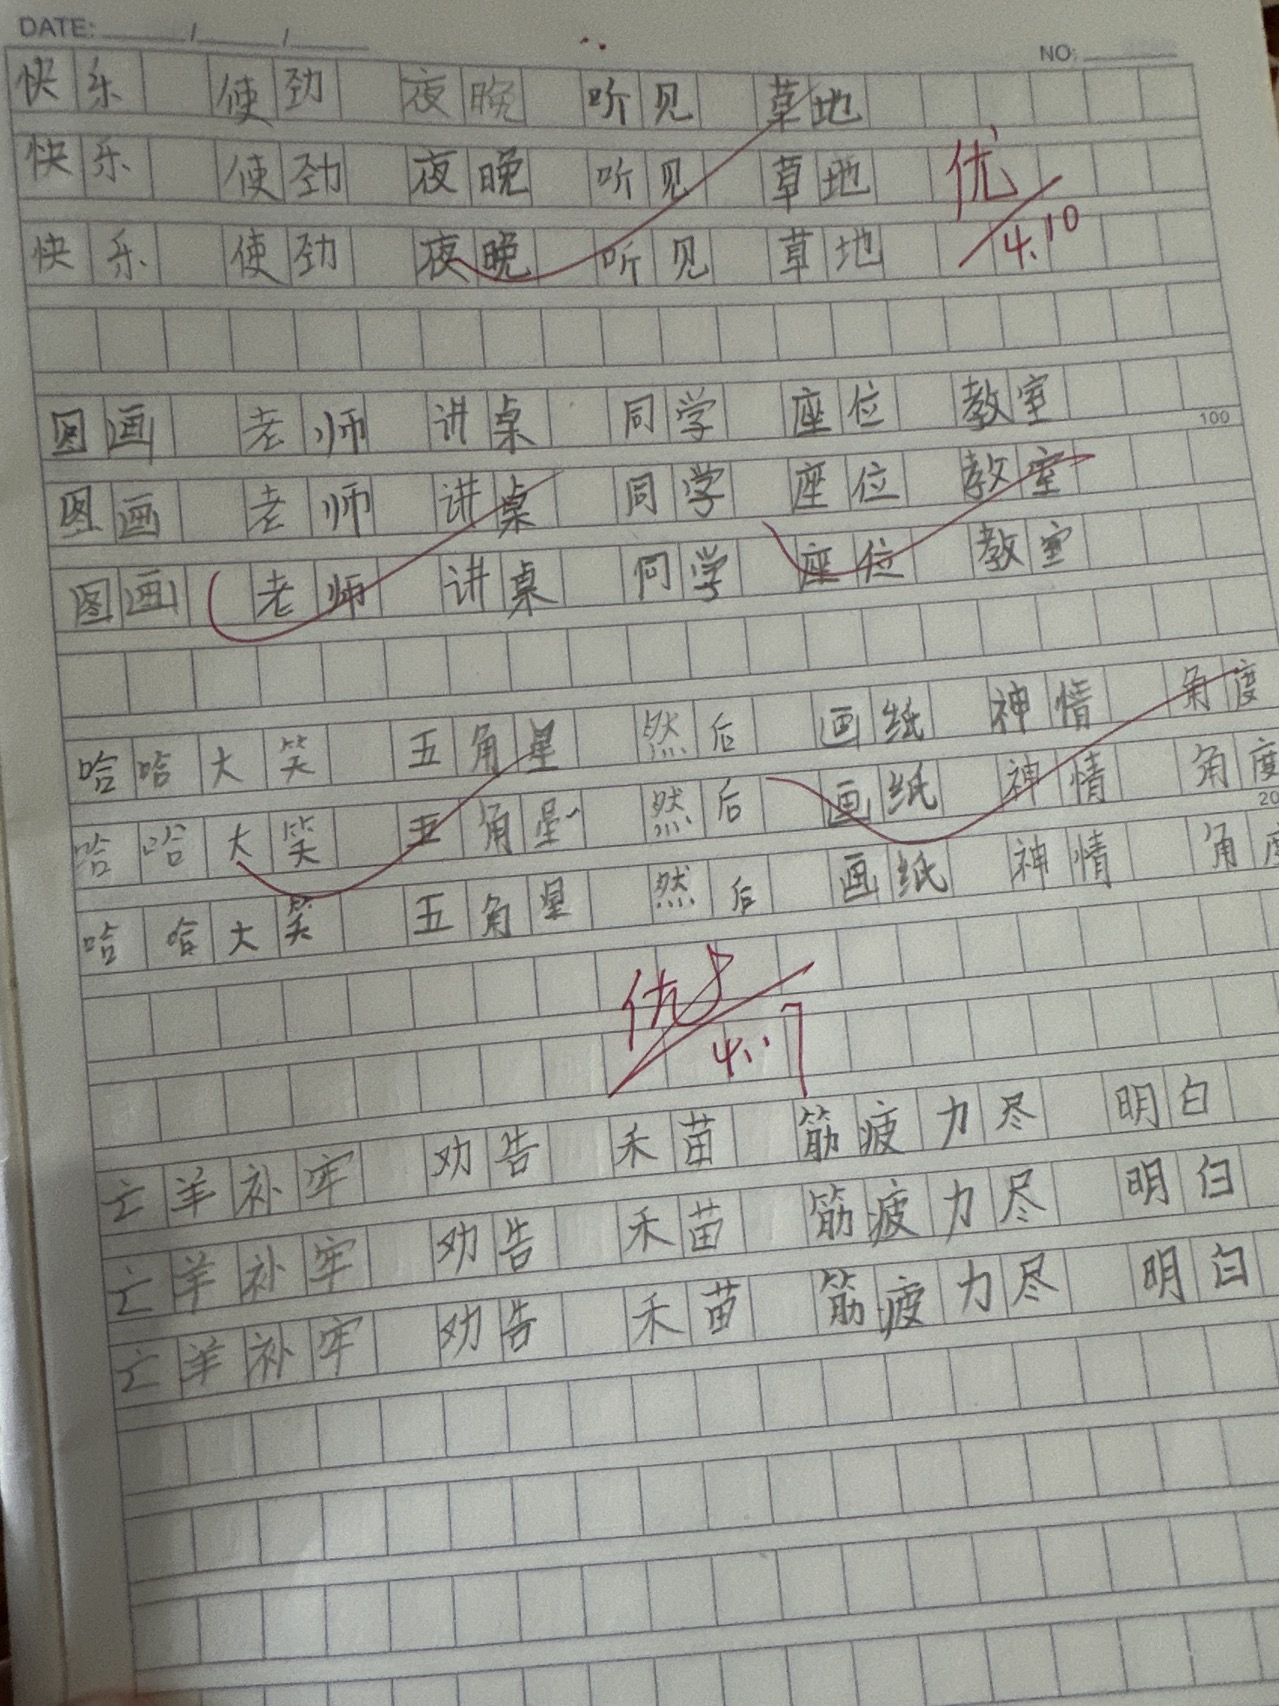 DATE: / /
NO:
快乐 使劲 夜晚 听见 草地
快乐 使劲 夜晚 听见 草地
优
快乐 使劲 夜晚 听见 草地
4.10
图画 老师 讲桌 同学 座位 教室
100
图画 老师 讲桌 同学 座位 教室
图画 老师 讲桌 同学 座位 教室
哈哈大笑 五角星 然后 画纸 神情 角度
哈哈大笑 五角星 然后 画纸 神情 角度
20
哈哈大笑 五角星 然后 画纸 神情 角度
优
4.17
亡羊补牢 劝告 禾苗 筋疲力尽 明白
亡羊补牢 劝告 禾苗 筋疲力尽 明白
亡羊补牢 劝告 禾苗 筋疲力尽 明白